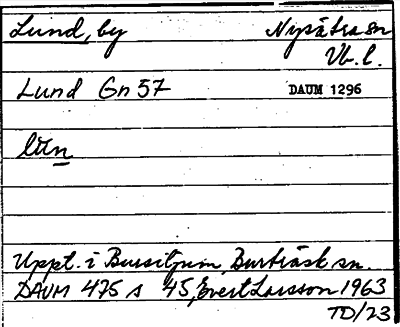 Lund, by Nysätra sn
Vb. l.
Lund Gn 57 DAUM 1296
Uppt. i Bursiljum, Burträsk sn.
DAUM 475 s 45, Evert Larsson 1963
TD/23